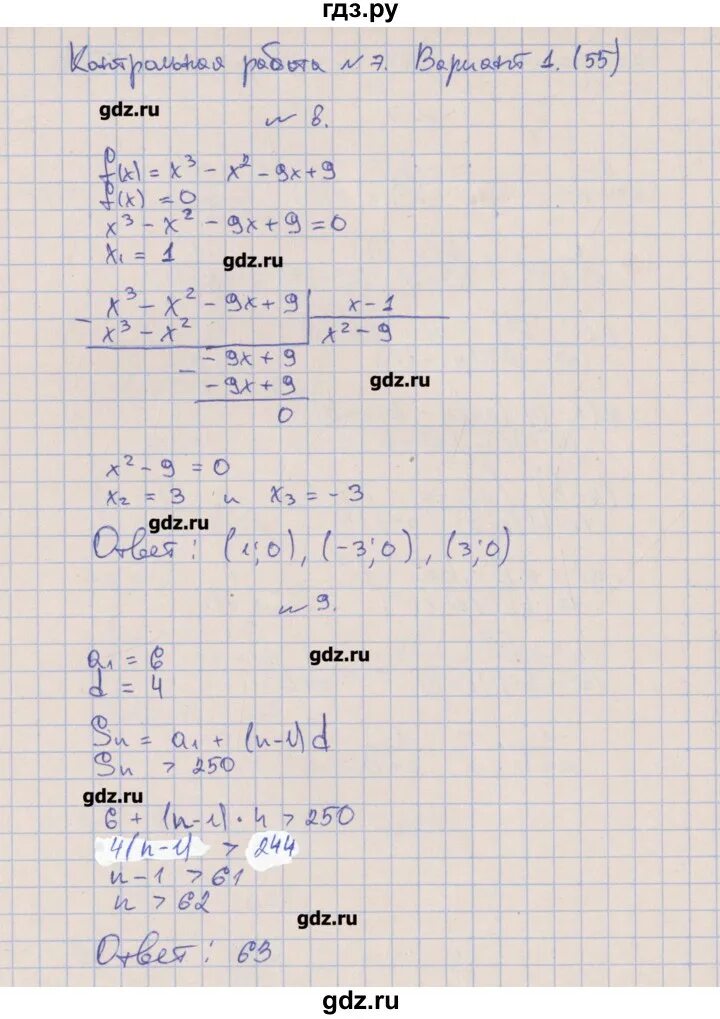 гдз.ру
Контрольная работа №7. Вариант 1. (55)
gdz.ru
№ 8.
f(x) = x³ - x² - 9x + 9
f(x) = 0
x³ - x² - 9x + 9 = 0
x₁ = 1
gdz.ru
x³ - x² - 9x + 9 | x - 1
- x³ - x² | x² - 9
- 9x + 9
- - 9x + 9
gdz.ru
0
x² - 9 = 0
x₂ = 3 и x₃ = -3
gdz.ru
Ответ: (1;0), (-3;0), (3;0)
№ 9.
gdz.ru
a₁ = 6
d = 4
Sn = a₁ + (n-1)d
Sn > 250
gdz.ru
6 + (n-1) · 4 > 250
4(n-1) > 244
n-1 > 61
n > 62
gdz.ru
Ответ: 63
gdz.ru